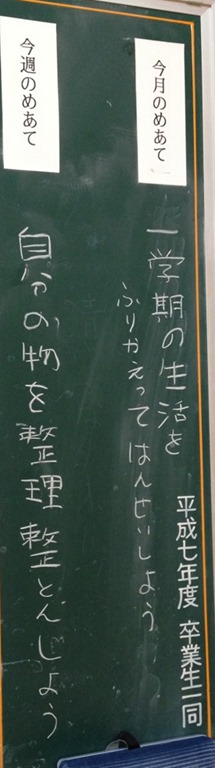 今月のめあて
一学期の生活を
ふりかえって はんせいしよう
平成七年度 卒業生一同
今週のめあて
自分の物を整理整とんしよう